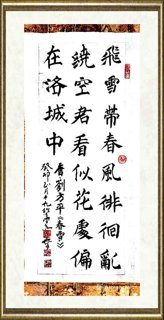 飛雪帶春風徘徊亂
繞空君看似花處偏
在洛城中
劉方平《春雪》
癸卯月十九